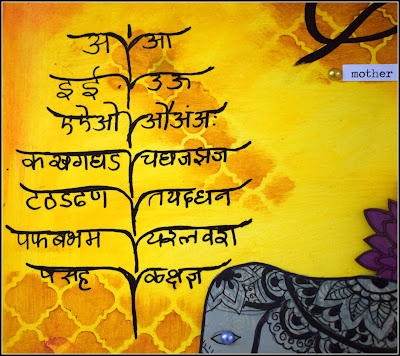 अ आ
इ ई उ ऊ
mother
ए ऐ ओ औ अं अः
क ख ग घ ड च छ ज झ ञ
ट ठ ड ढ ण त थ द ध न
प फ ब भ म य र ल व श
ष स ह ळ क्ष ज्ञ